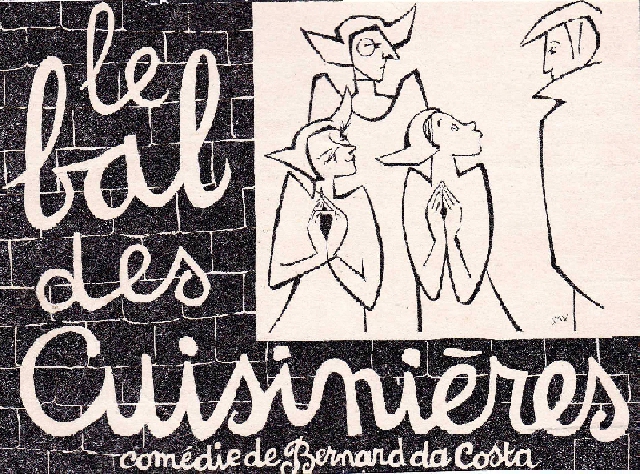 le
bal
des
Cuisinières
comédie de Bernard da Costa